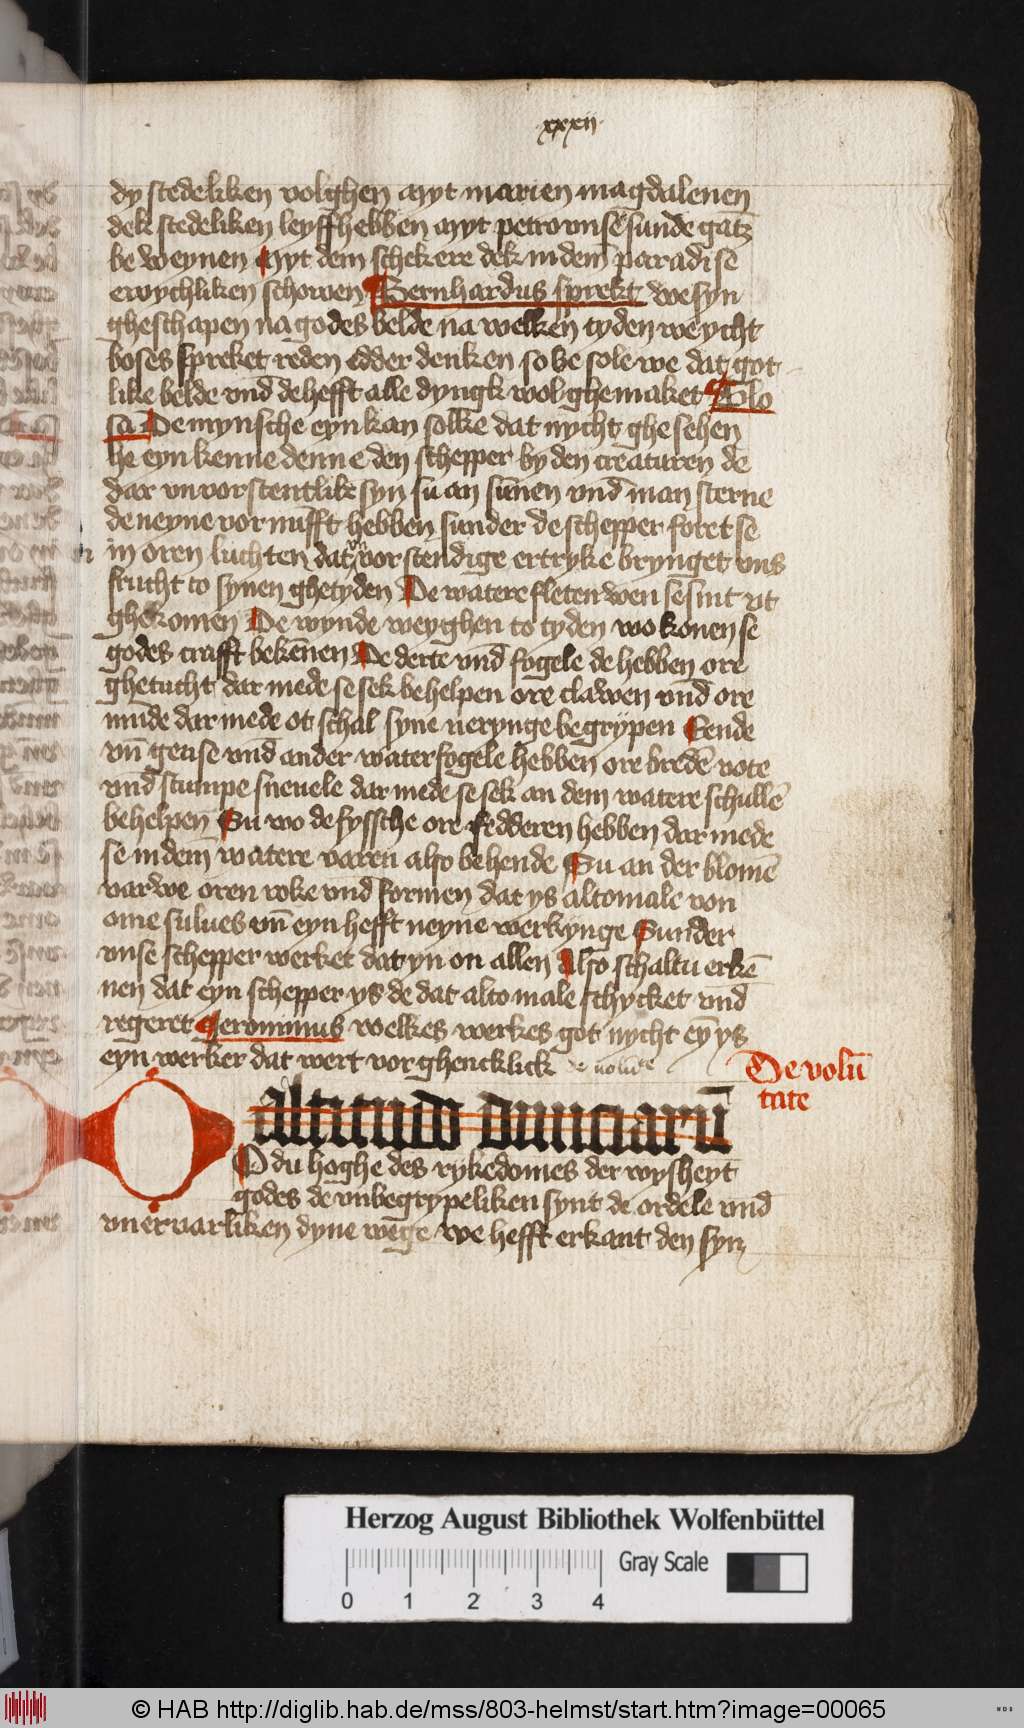 xxxii
dy stedeliken volghen myt marien magdalenen
dek stedeliken leyffhebben myt petro vnse sunde gātz
be weynen Myt dem schekere dek in dem paradise
ewychliken schowen Bernhardus sprekt we syn
gheschapen na godes belde na welken tyden we ycht
boses spreket reden edder denken so be sole we dat got
like belde vnd de hefft alle dyngk wol ghemaket Glo
sa De mynsche eyn kan solke dat nycht ghe sehen
he eyn kenne denne den schepper by den creaturen de
dar vnvorstentlik syn su an sunen vnd man sterne
de neyne vornufft hebben sunder de schepper foret se
in oren luchten dat vnvorstendige ertryke brynget vns
frucht to synen ghetyden De watere fleten wen se sint vt
ghekomen De wynde weyghen to tyden wo konen se
godes crafft bekēnen De derte vnd fogele de hebben ore
ghetucht dar mede se sek behelpen ore clawen vnd ore
munde dar mede ot schal syne nerynge begrypen Eende
vn̄ gense vnd ander waterfogele hebben ore bredē vote
vnd stumpe sneuele dar mede se sek an dem watere schullē
behelpen Su wo de fyssche ore fedderen hebben dar mede
se in dem watere varen also behende Su an der blomē
varwe oren roke vnd formen dat ys altomale von
ome sulues vn̄ eyn hefft neyne werkynge Sunder
vnse schepper werket dat yn on allen Also schaltu erkē
nen dat eyn schepper ys de dat alto male schycket vnd
regeret Jeronimus welkes werkes got nycht eȳ ys
eyn werker dat wert vorghencklick
De volū
tate
O altitudo diuiciarū
O du hoghe des rykedomes der wysheyt
godes de vnbegrypeliken synt de ordele vnd
vneruarliken dyne wege we hefft erkant den syn
Herzog August Bibliothek Wolfenbüttel
Gray Scale
0 1 2 3 4
© HAB http://diglib.hab.de/mss/803-helmst/start.htm?image=00065